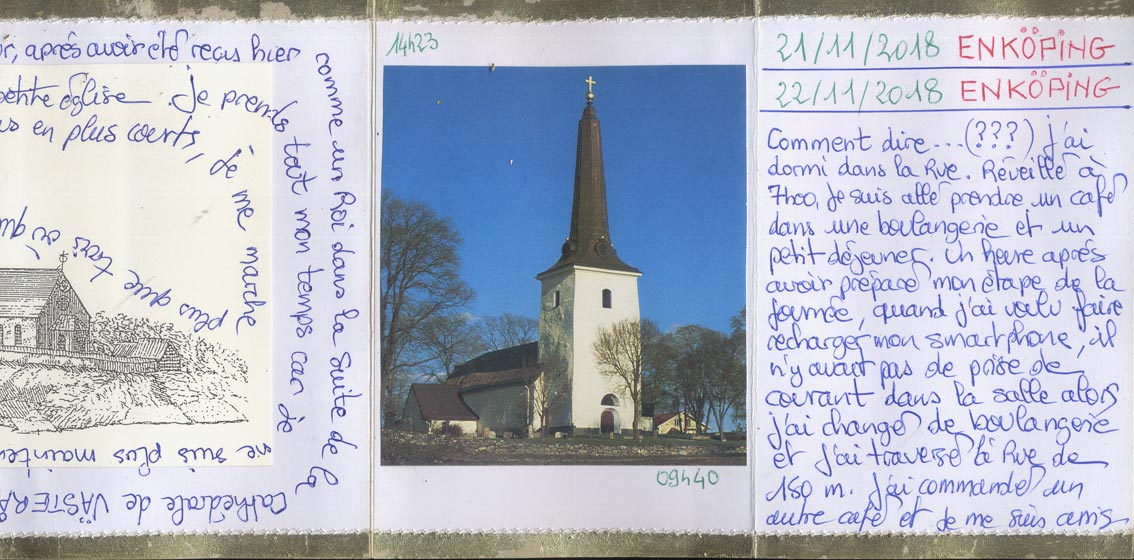 r, aprés avoir été reçus hier
comme un Roi dans la suite de la
Cathédrale de VÄSTERÅ
petite église. Je prends tout mon temps car je
ne suis plus mainten
us en plus courts, je me marche
plus que trois ou qu
14h23
09h40
21/11/2018 ENKÖPING
22/11/2018 ENKÖPING
Comment dire...(???) j'ai
dormi dans la Rue. Réveillé à
7h00, je suis allé prendre un café
dans une boulangerie et un
petit déjeuner. Un heure aprés
avoir préparé mon étape de la
journée, quand j'ai voulu faire
recharger mon smartphone, il
n'y avait pas de prise de
courant dans la salle alors
j'ai changé de boulangerie
et j'ai traversé la Rue de
150 m. J'ai commandé un
autre café et je me suis